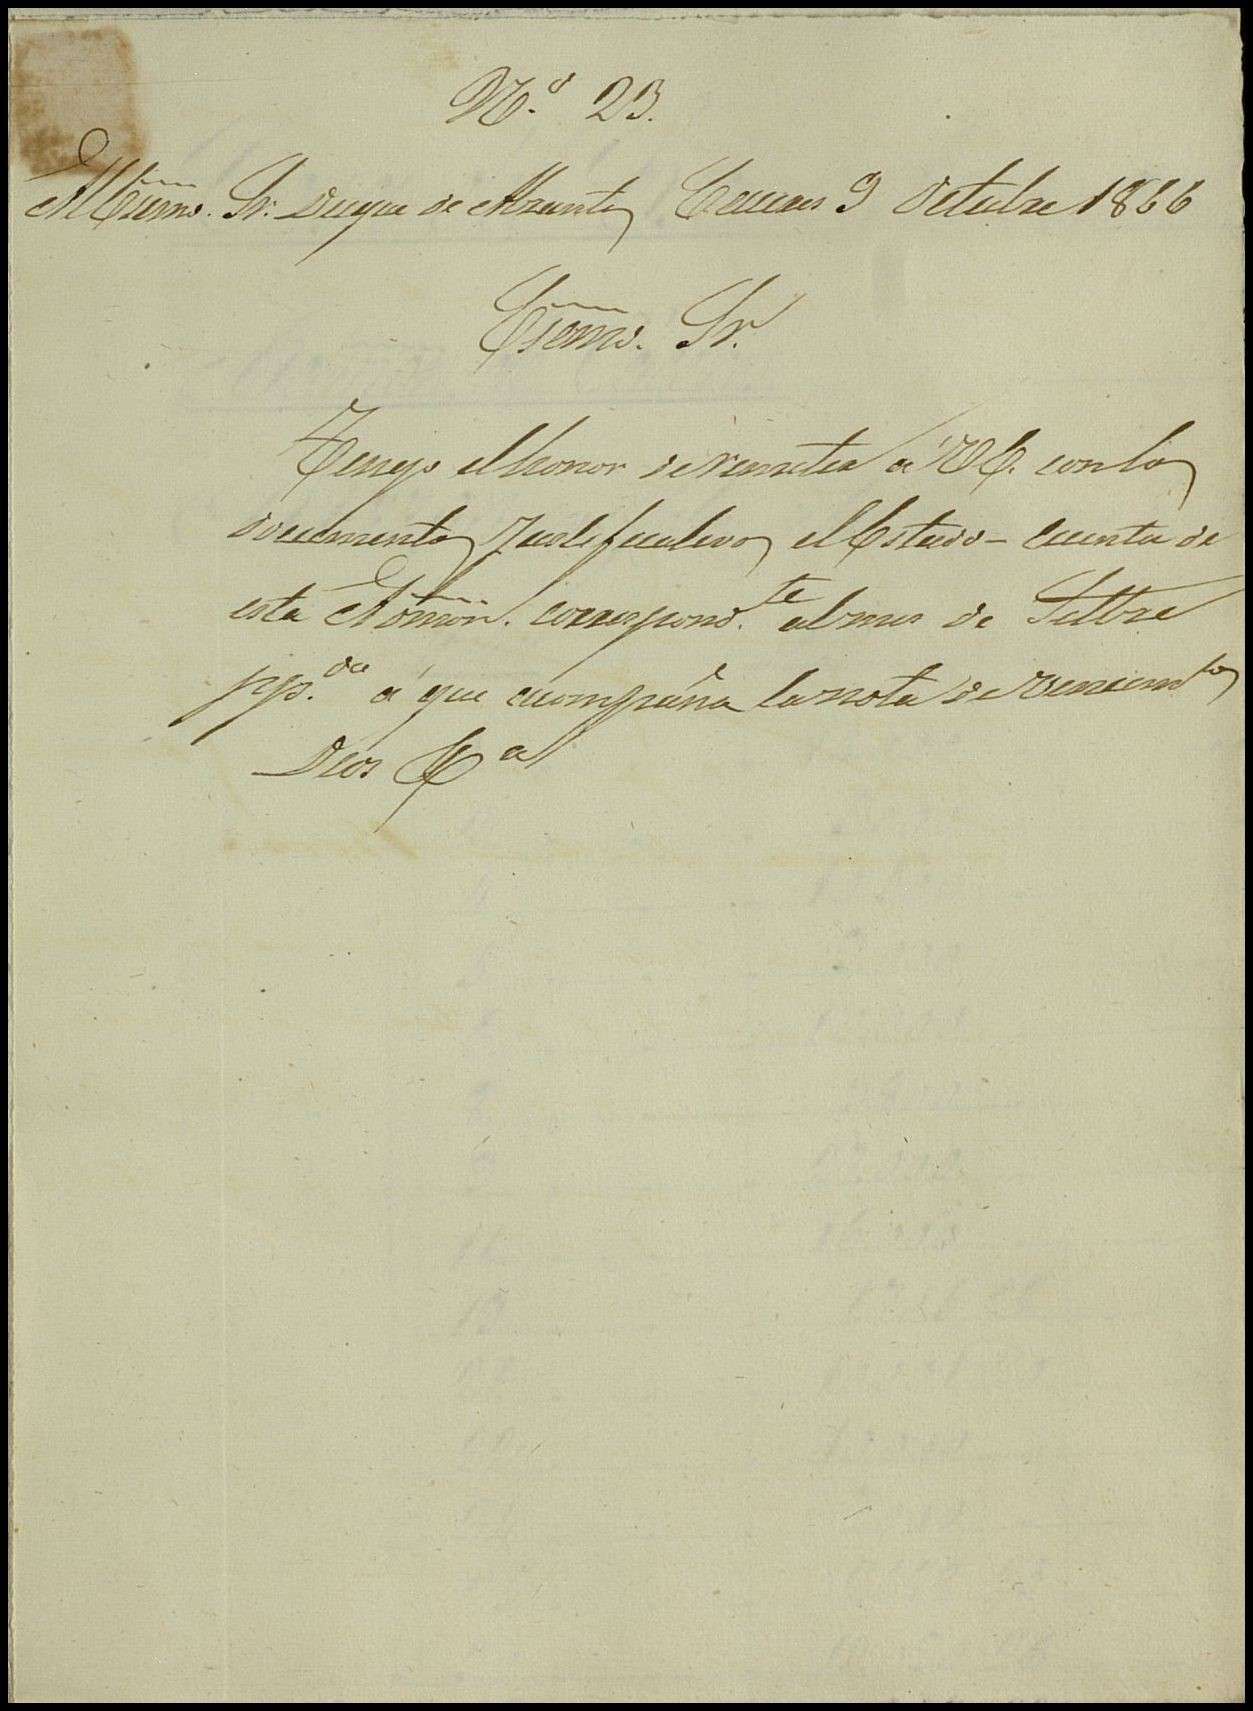 N.º 23.
Al Escmo. Sr. Duque de Abrantes 9 Octubre 1866
Escmo. Sr.
Tengo el honor de remitir a VE. con los
documentos justificativos el Estado-cuenta de
esta Admon. correspond.te al mes de Setbre
pp.do a que acompaña la nota de vencimtos
Dios &a